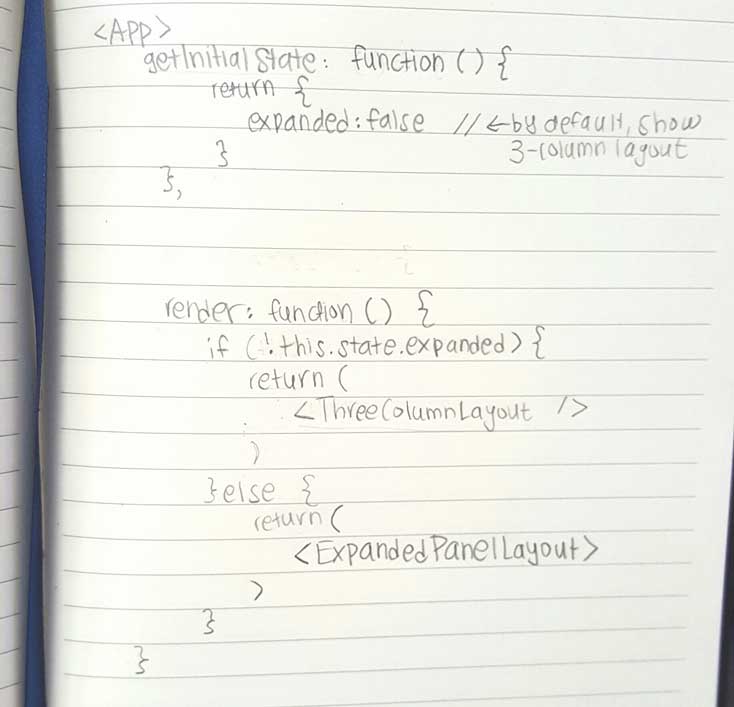 <APP>
getInitialState: function () {
return {
expanded: false // ← by default, show
3-column layout
}
},
render: function () {
if (!this.state.expanded) {
return (
<ThreeColumnLayout />
)
} else {
return (
<ExpandedPanelLayout>
)
}
}